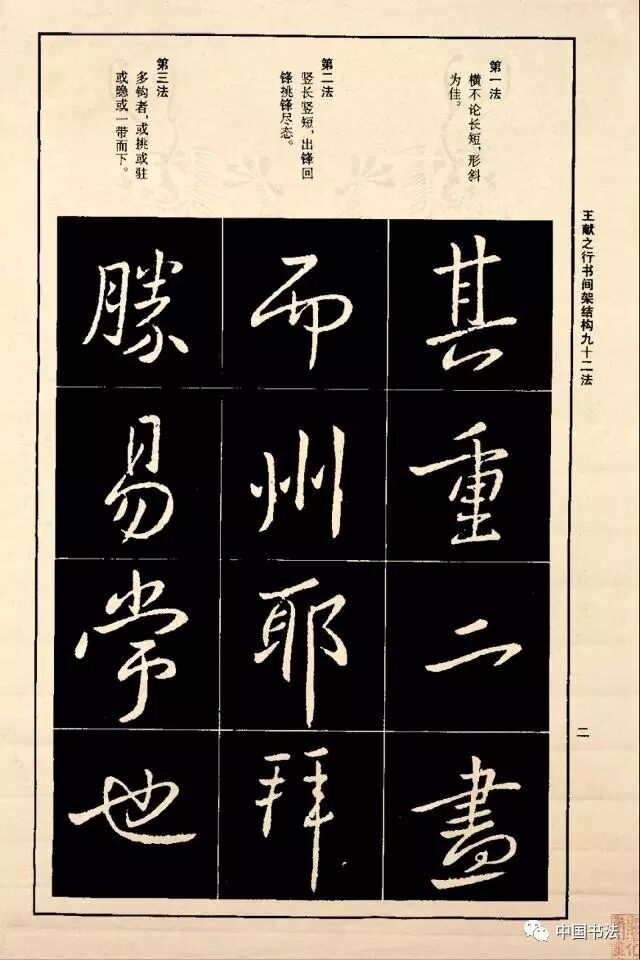 王献之行书间架结构九十二法
二
第一法
横不论长短，形斜
为佳。
第二法
竖长竖短，出锋回
锋挑锋尽态。
第三法
多钩者，或挑或驻
或隐或一带而下。
其重二畫
而州耶拜
勝易常也
中国书法